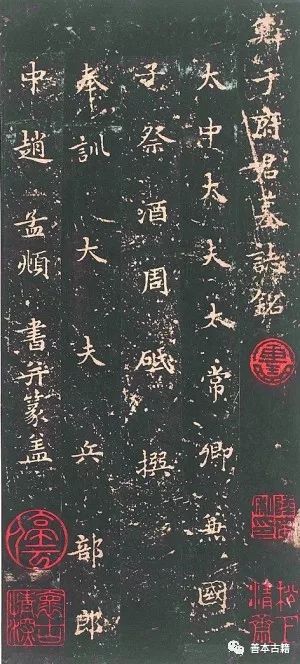 鮮于府君墓誌銘
大中大夫太常卿兼國
子祭酒周砥撰
奉訓大夫兵部郎
中趙孟頫書并篆蓋
松下清齋
善本古籍